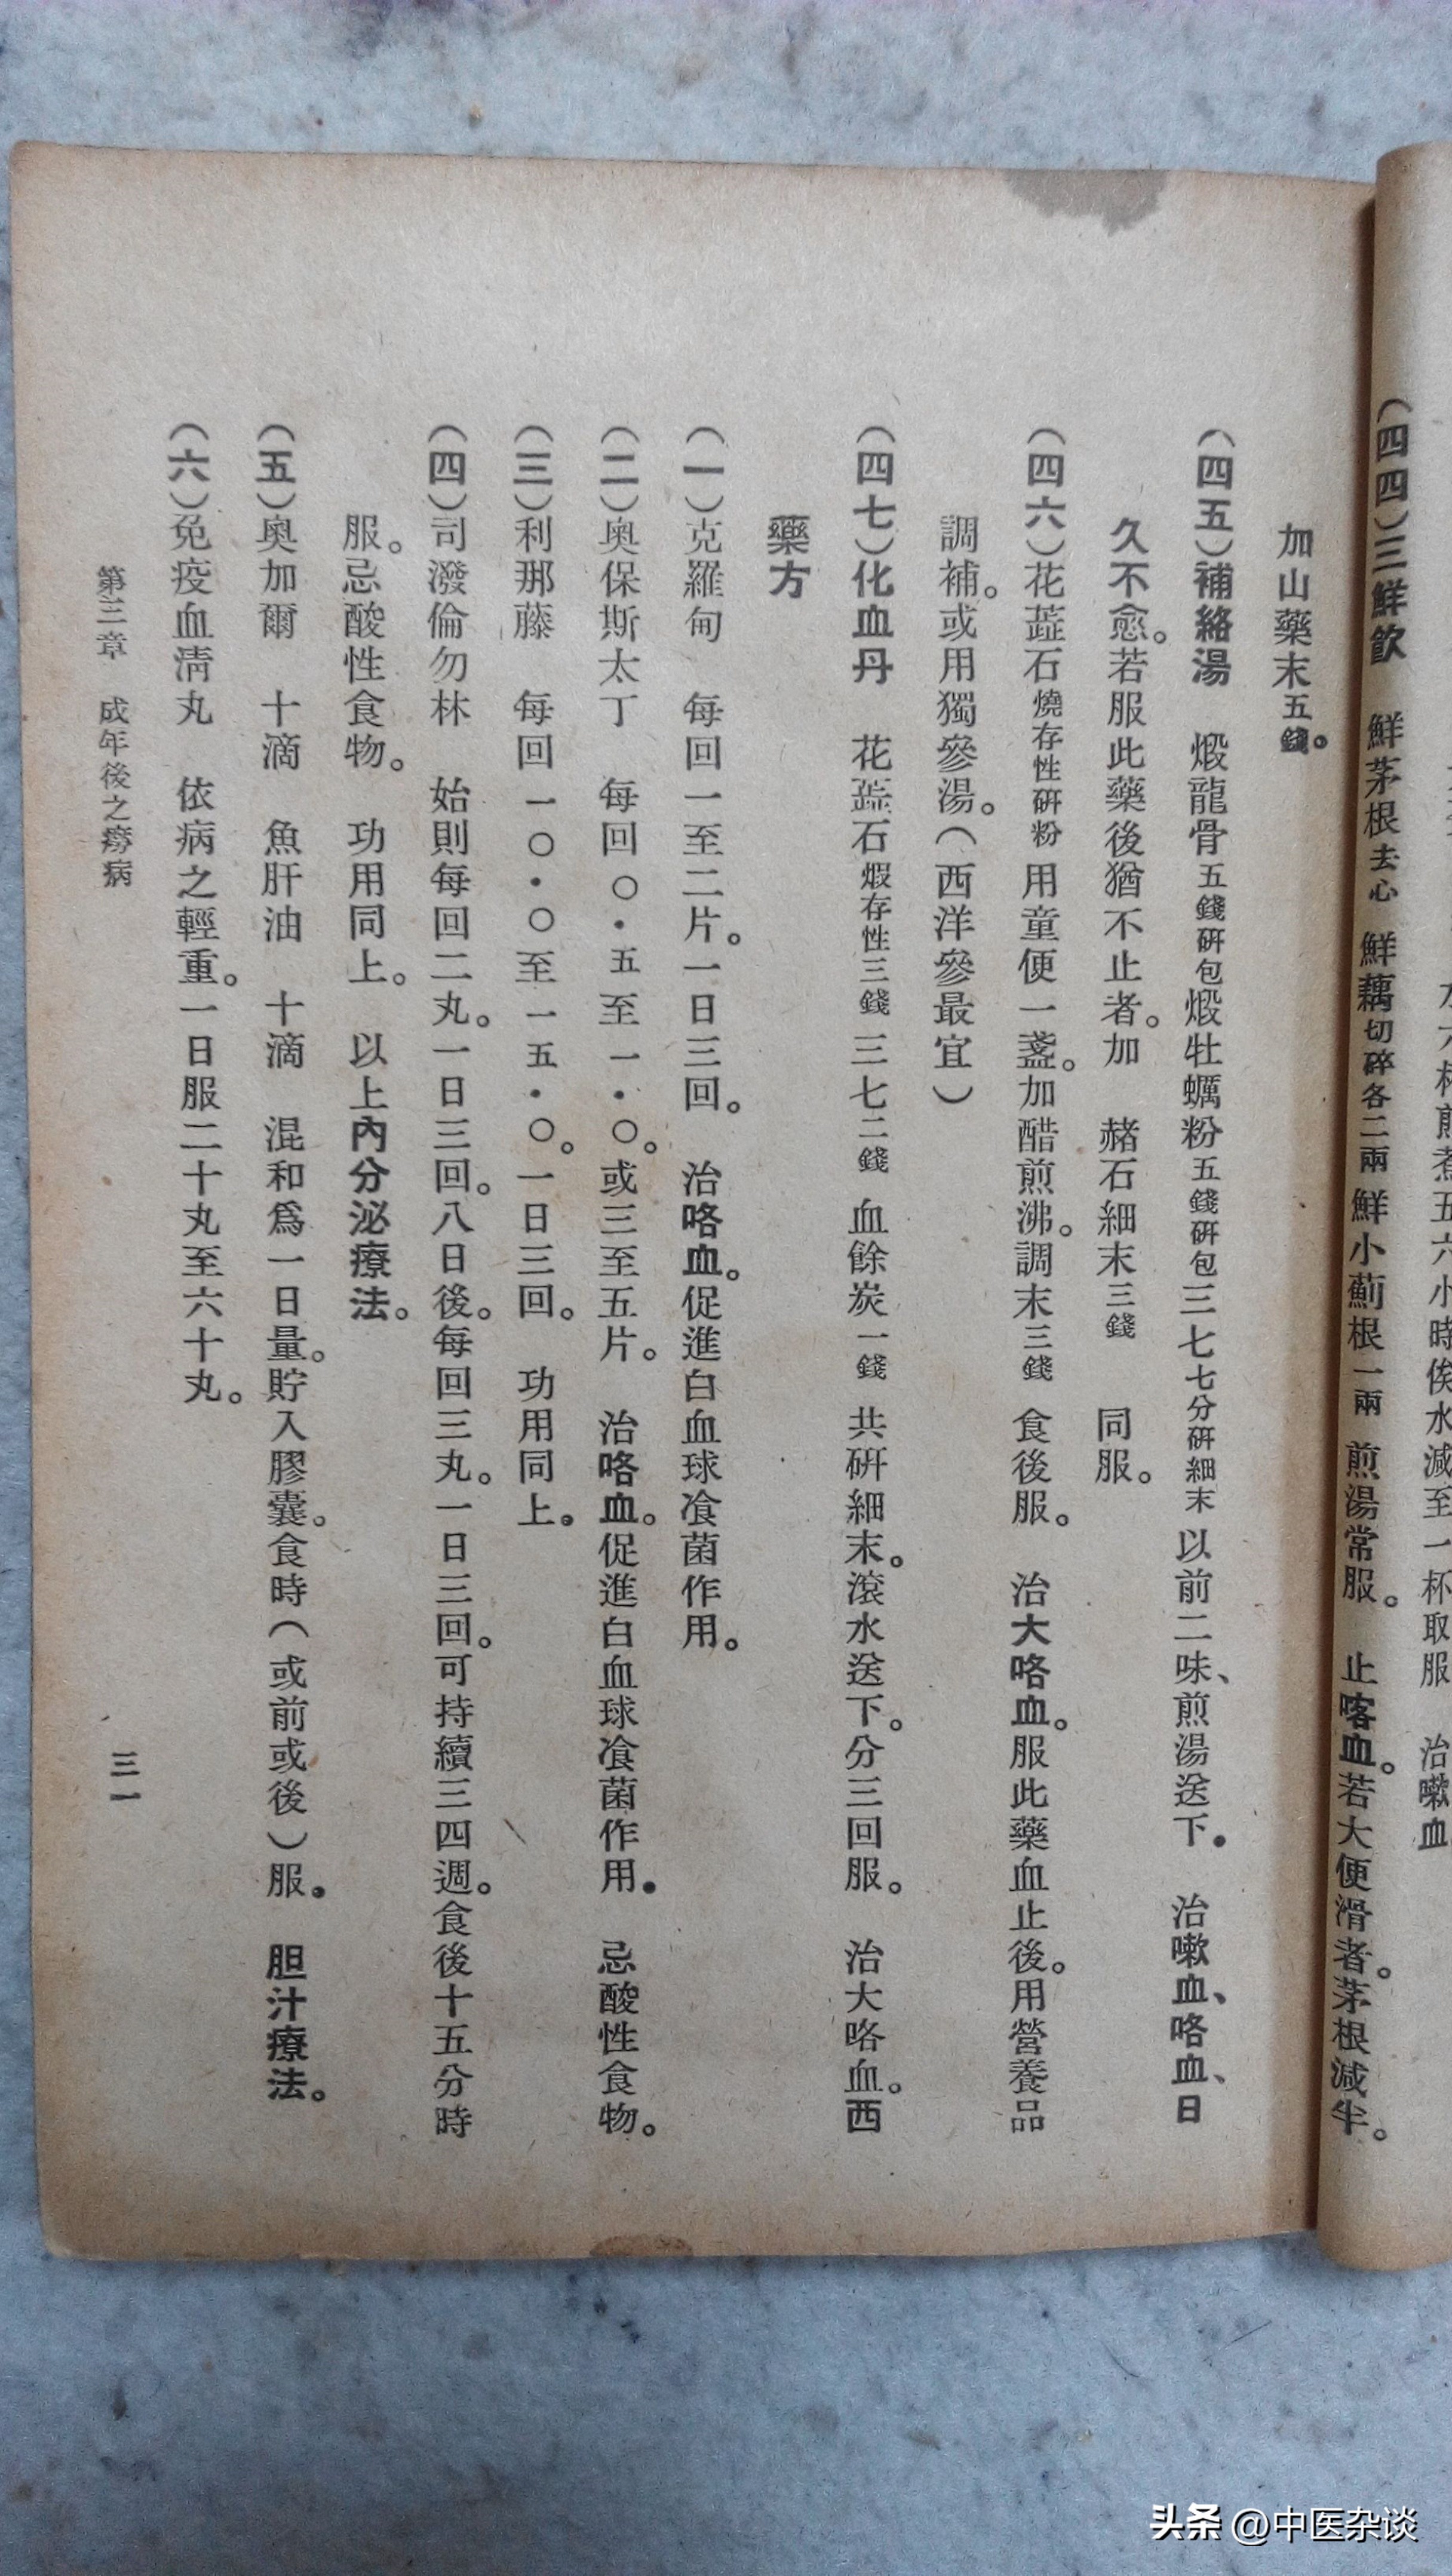 水六杯煎煮五六小時俟水減至一杯取服　治嗽血
(四四)三鮮飲　鮮茅根去心　鮮藕切碎各二兩鮮小薊根一兩　煎湯常服。　止喀血。若大便滑者。茅根減半。
加山藥末五錢。
(四五)補絡湯　煅龍骨五錢研包煅牡蠣粉五錢研包三七七分研細末以前二味、煎湯送下。　治嗽血、咯血、日
久不愈。若服此藥後猶不止者。加　赭石細末三錢　同服。
(四六)花蕋石燒存性研粉　用童便一盞。加醋煎沸。調末三錢　食後服。　治大咯血。服此藥血止後。用營養品
調補。或用獨參湯。(西洋參最宜)
(四七)化血丹　花蕋石煅存性三錢　三七二錢　血餘炭一錢　共研細末。滾水送下。分三回服。　治大咯血。西
藥方
(一)克羅甸　每回一至二片。一日三回。　治咯血。促進白血球飡菌作用。
(二)奧保斯太丁　每回〇·五至一·〇。或三至五片。　治咯血。促進白血球飡菌作用。　忌酸性食物。
(三)利那藤　每回一〇·〇至一五·〇。一日三回。　功用同上。
(四)司潑倫勿林　始則每回二丸。一日三回。八日後。每回三丸。一日三回。可持續三四週。食後十五分時
服。忌酸性食物。　功用同上。　以上內分泌療法。
(五)奧加爾　十滴　魚肝油　十滴　混和爲一日量。貯入膠囊。食時(或前或後)服。　胆汁療法。
(六)免疫血清丸　依病之輕重。一日服二十丸至六十丸。
第三章　成年後之癆病
三一
头条 @中医杂谈